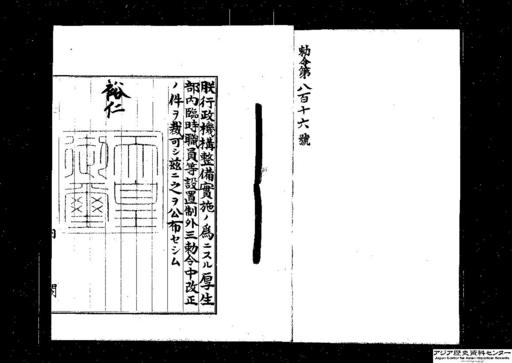 勅令第八百十六號
朕行政機構整備實施ノ爲ニスル厚生
部内臨時職員等設置制外三勅令中改正
ノ件ヲ裁可シ茲ニ之ヲ公布セシム
裕仁
天皇
御璽
内
閣
アジア歴史資料センター
Japan Center for Asian Historical Records